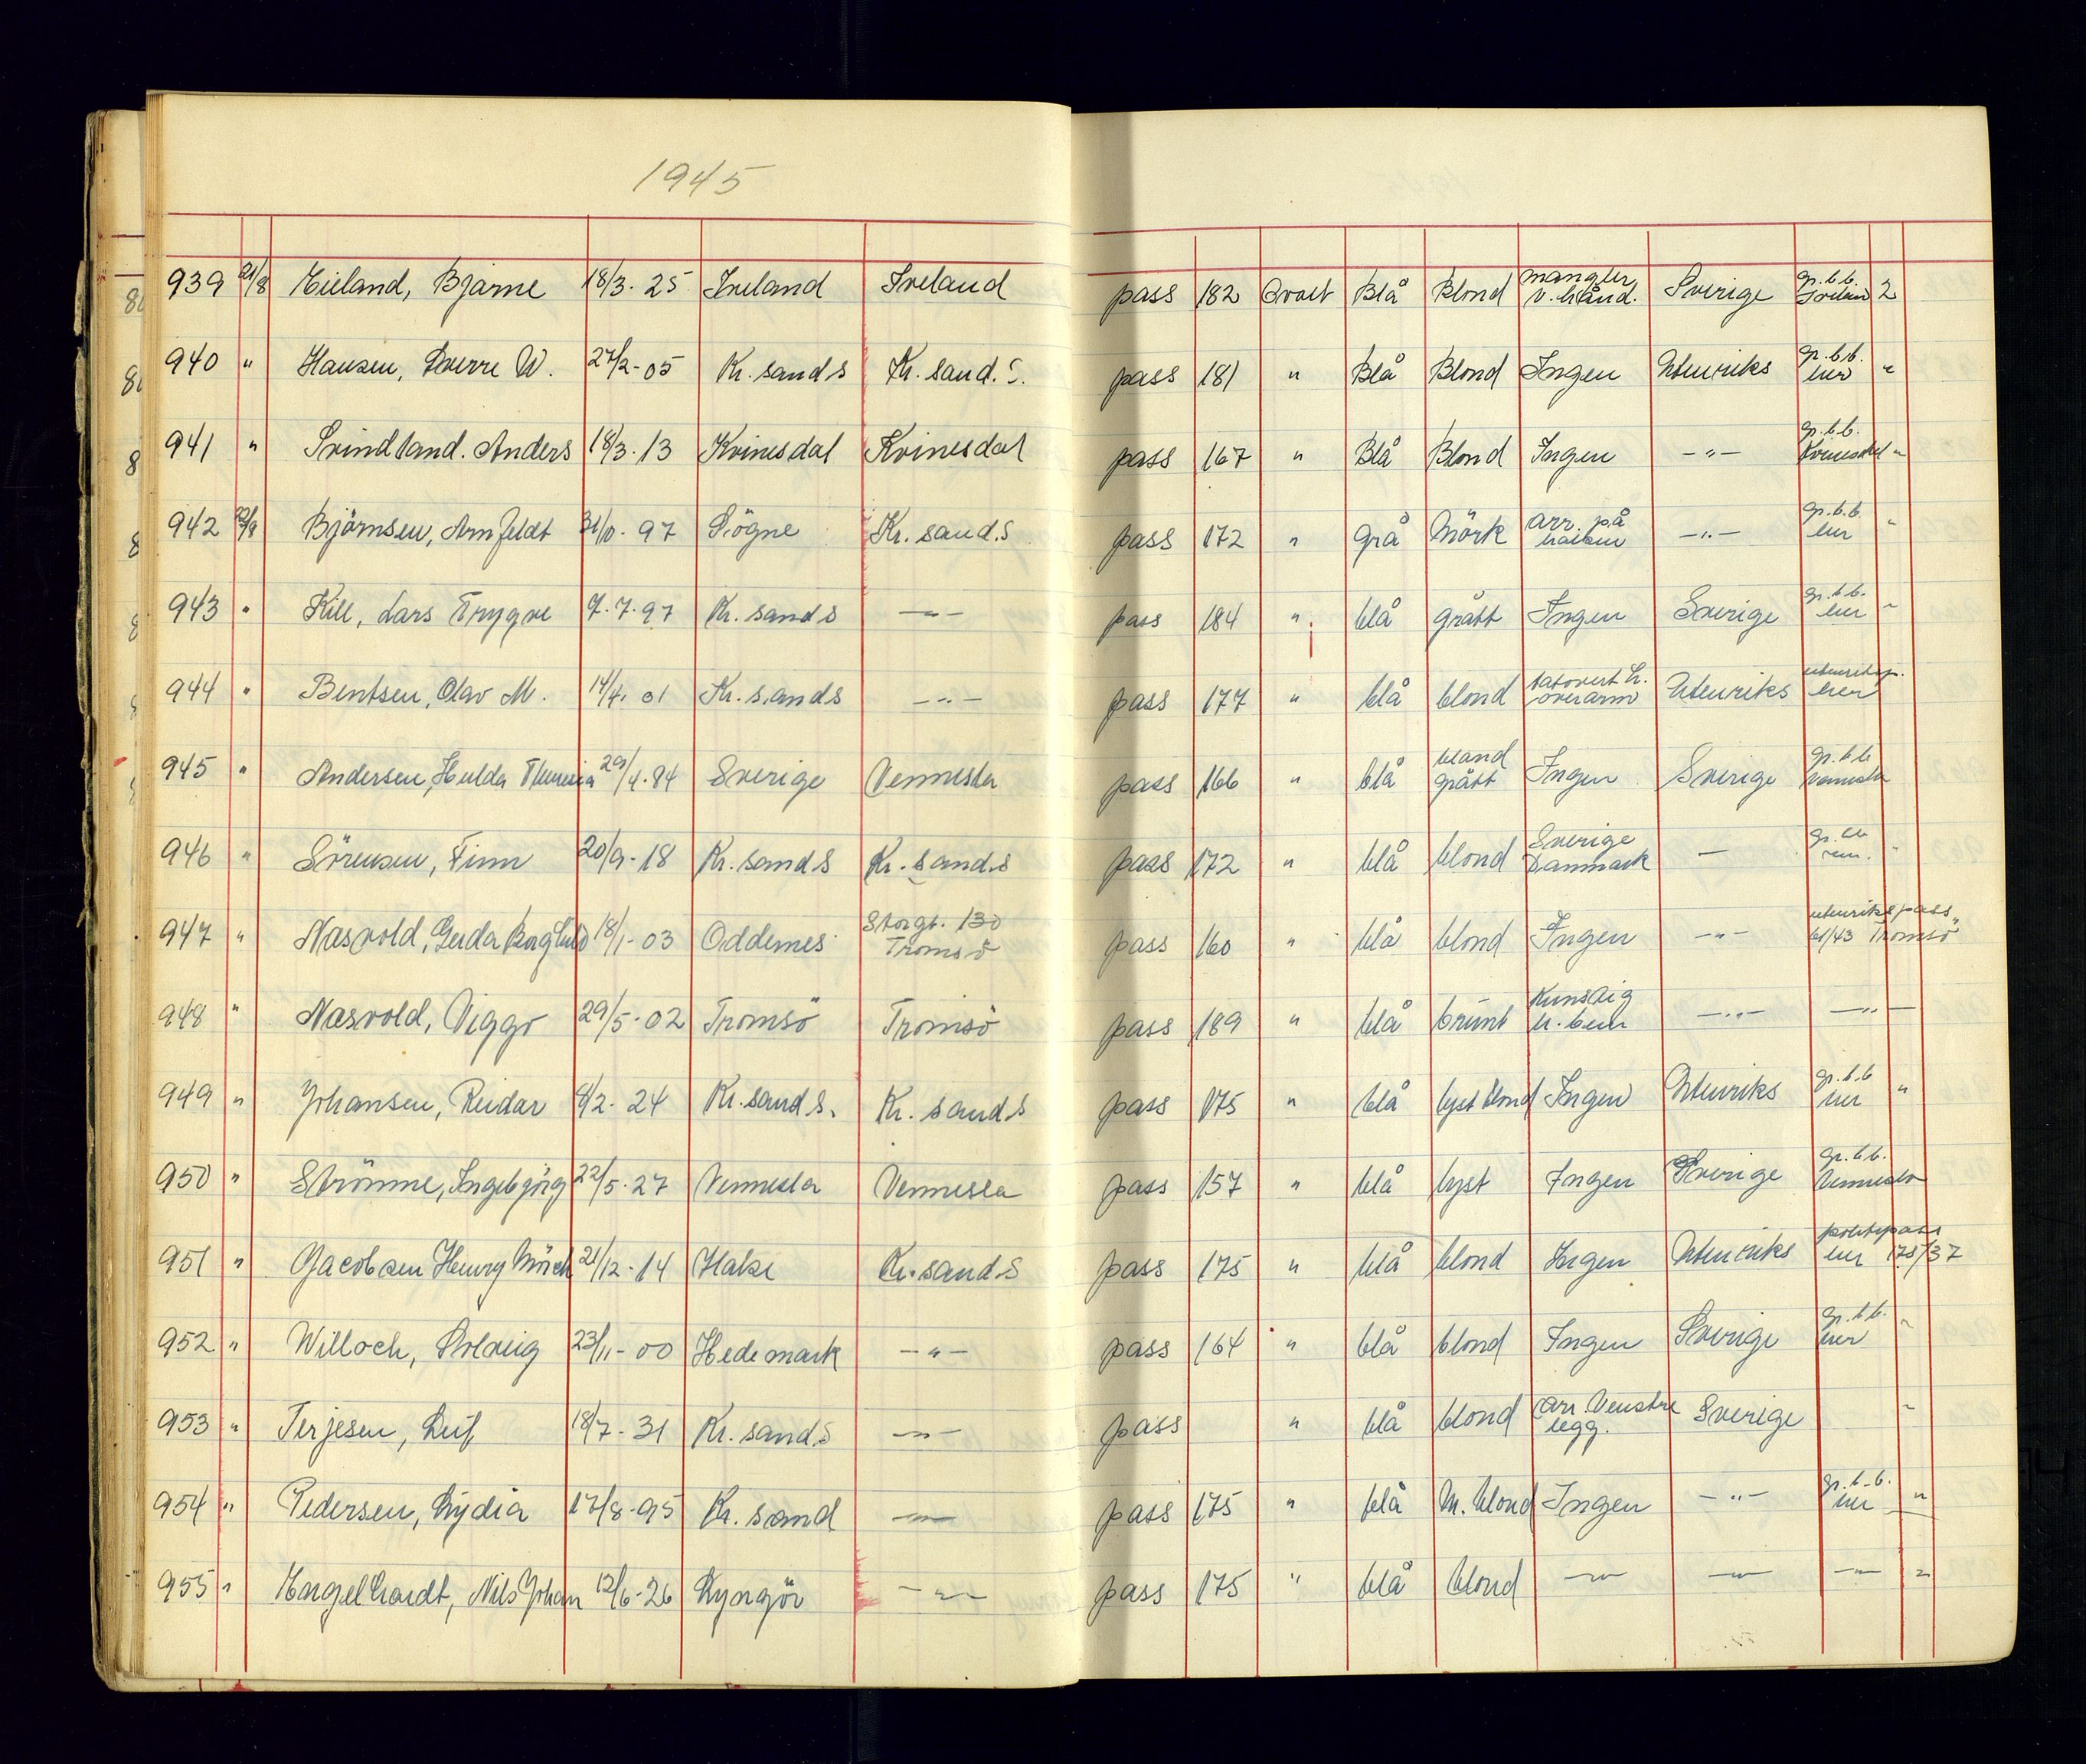 1945
939 21/8 Mieland, Bjarne 18/3. 25 Iveland Iveland pass 182 Ovalt Blå Blond mangler v. hånd. Sverige gr.b.b. Iveland 2
940 " Hansen, Sverre W. 27/2-05 Kr. sand S Kr. sand. S. pass 181 " Blå Blond Ingen Utenriks gr.b.b. her "
941 " Svindland. Anders 18/3. 13 Kvinesdal Kvinesdal pass 167 " Blå Blond Ingen —"— gr.b.b. Kvinesdal "
942 22/8 Björnsen, Arnfeldt 31/10. 97 Sögne Kr. sand.S pass 172 " grå Mörk arr. på haken —"— gr.b.b. her "
943 " Kill, Lars Trygve 7.7.97 Kr. sand S —"— pass 184 " blå grått Ingen Sverige gr.b.b. her "
944 " Bentsen, Olav M. 14/4. 01 Kr. sand S —"— pass 177 " blå blond tatovert h. overarm Utenriks utenriksp. her
945 " Andersen, Hulda 29/4.84 Sverige Vennesla pass 166 " blå bland grått Ingen Sverige gr.b.b Vennesla
946 " Sörensen, Finn 20/9-18 Kr. sand S Kr. sand.S pass 172 " blå blond Sverige Danmark — gr.bb her. "
947 " Næsvold, Gerda Borghild 18/1-03 Oddernes Storgt. 130 Tromsö pass 160 " blå blond Ingen —"— utenrikspass 61/43 Tromsö
948 " Næsvold, Viggo 29/5-02 Tromsö Tromsö pass 189 " blå brunt Kunstig h. ben —"— —"—
949 " Johansen, Reidar 8/2. 24 Kr. sand S. Kr. sand S pass 175 " blå lyst blond Ingen Utenriks gr.b.b her "
950 " Strömme, Ingebjörg 22/5.27 Vennesla Vennesla pass 157 " blå lyst Ingen Sverige gr.b.b. Vennesla
951 " Jacobsen Henry Mörch 21/12-14 Halse Kr. sand S pass 175 " blå blond Ingen Utenriks her 175/37
952 " Willoch, Solveig 23/11-00 Hedemark —"— pass 164 " blå blond Ingen Sverige gr.b.b. her "
953 " Terjesen, Leif 18/7-31 Kr. sand.S —"— pass " blå blond arr. Venstre legg. Sverige "
954 " Pedersen, Lydia 17/8-95 Kr. sand —"— pass 175 " blå M. blond Ingen —"— gr.b.b. her "
955 " Engelhardt, Nils Johan 12/6-26 Lyngör —"— pass 175 " blå blond —"— —"— —"— "